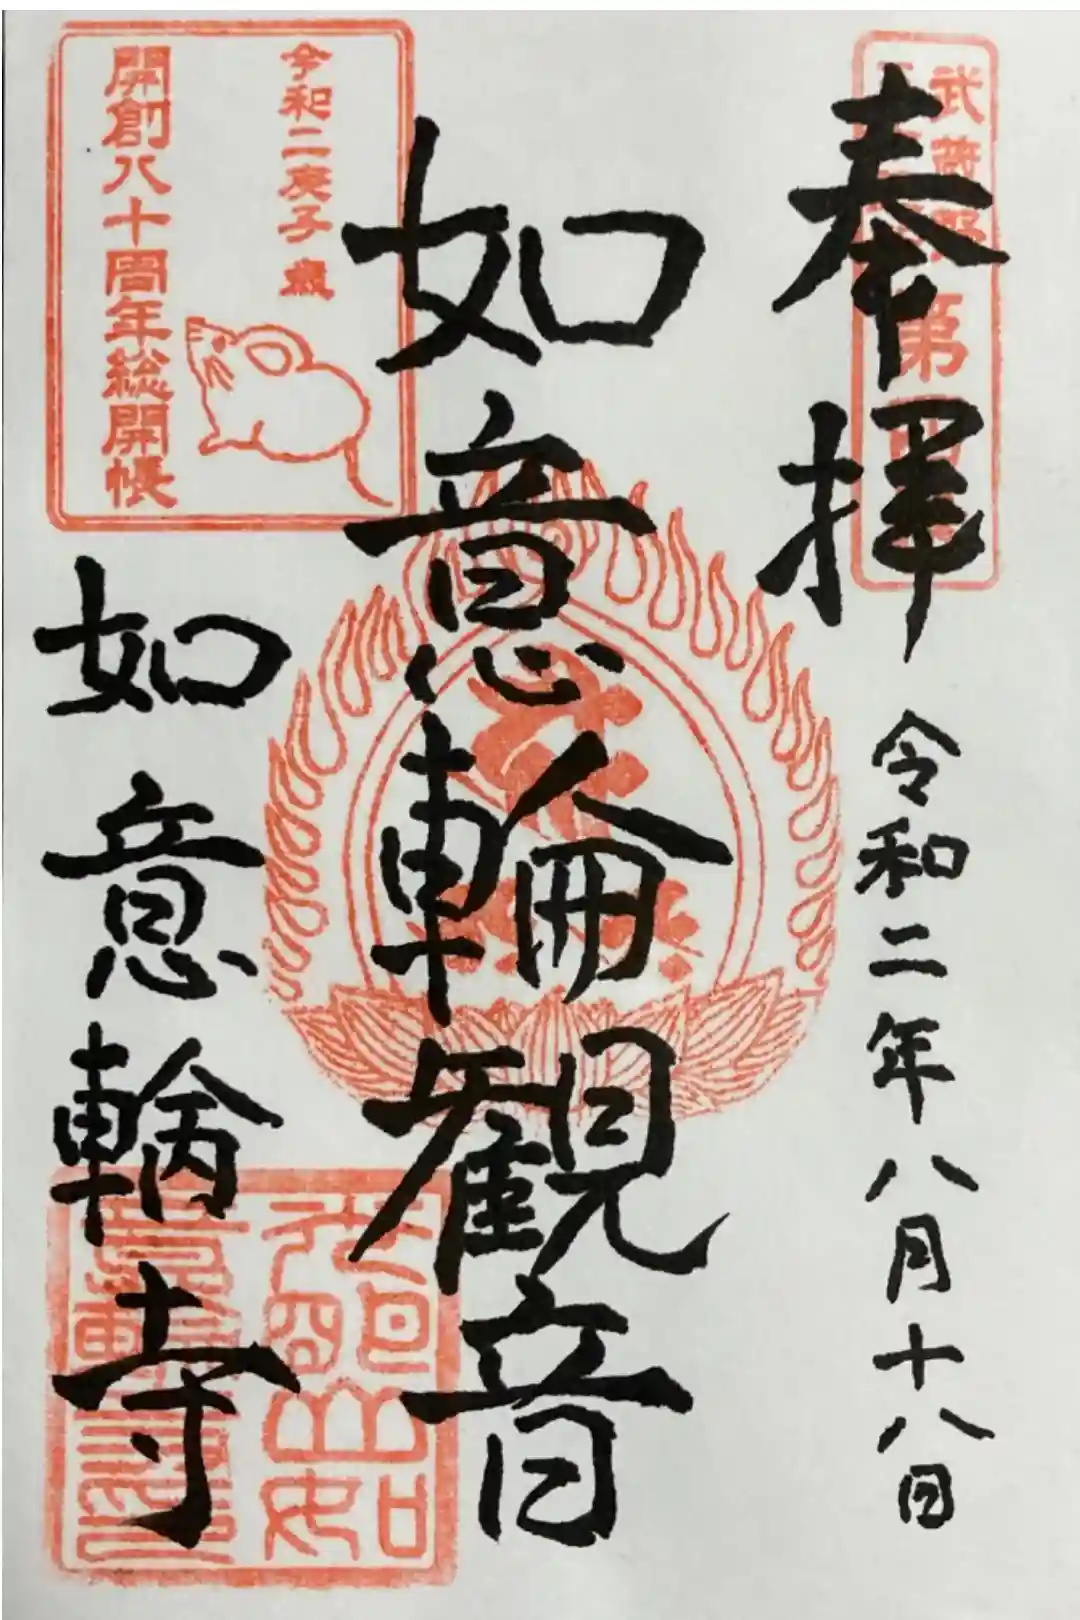 奉拝
令和二年八月十八日
如意輪観音
如意輪寺
武蔵野
第
令和二庚子歳
開創八十周年総開帳